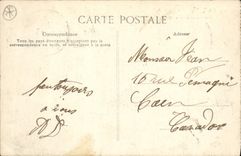 CARTE POSTALE
Correspondance
Tous les pays étrangers n'acceptent pas la
correspondance au recto, se renseigner à la poste
Adresse
Monsieur Jean
16 rue
Caen
Calvados
à vous